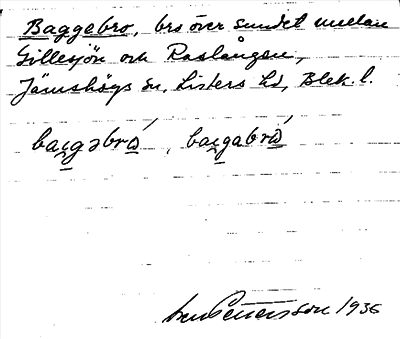 Baggebro, bro över sundet mellan
Gillesjön och Raslången,
Jämshögs sn, Listers hd, Blek. l.
baggəbro, baggabro
Pettersson 1936